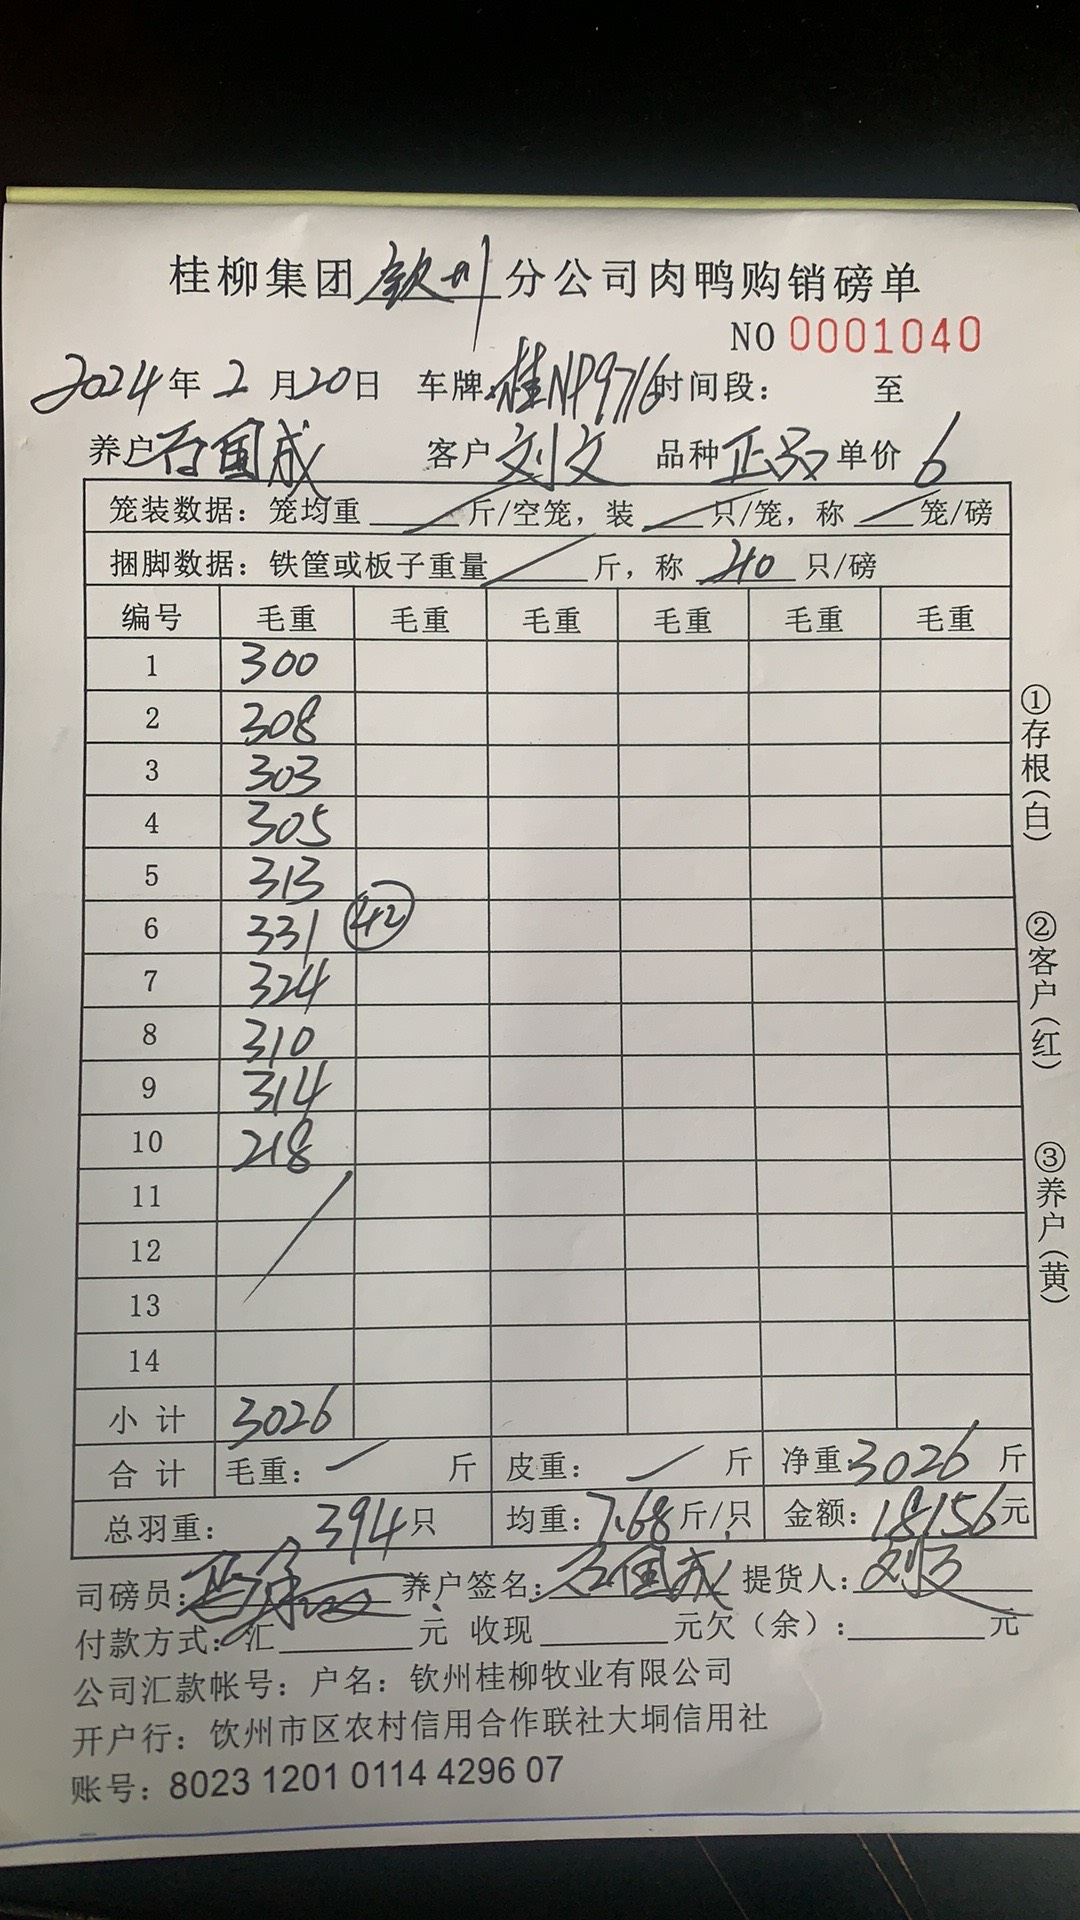 桂柳集团钦州分公司肉鸭购销磅单
NO 0001040
2024年2月20日 车牌:桂NP9716时间段: 至
养户石国成 客户刘文 品种正品 单价6
笼装数据: 笼均重 斤/空笼, 装 只/笼, 称 笼/磅
捆脚数据: 铁筐或板子重量 斤, 称 40 只/磅
编号 毛重 毛重 毛重 毛重 毛重 毛重
1 300
2 308
3 303
4 305
5 313
6 331 42
7 324
8 310
9 314
10 218
11
12
13
14
小计 3026
合计 毛重: 斤 皮重: 斤 净重:3026斤
总羽重: 394只 均重:7.68斤/只 金额:18156元
司磅员: 养户签名:石国成 提货人:刘文
付款方式: 汇 元 收现 元欠(余): 元
公司汇款帐号: 户名: 钦州桂柳牧业有限公司
开户行: 钦州市区农村信用合作联社大垌信用社
账号: 8023 1201 0114 4296 07
①存根(白)
②客户(红)
③养户(黄)